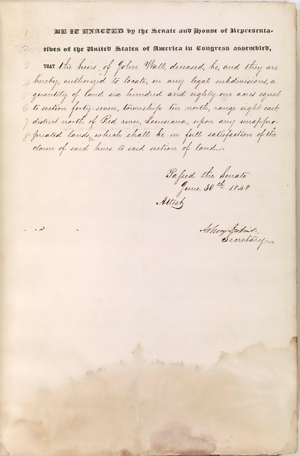 BE IT ENACTED by the Senate and House of Representa-
tives of the United States of America in Congress assembled,
THAT the heirs of John Wall, deceased, be, and they are
hereby, authorized to locate, in any legal subdivisions, a
quantity of land six hundred and eighty one acres equal
to section forty-seven, township ten north, range eight east,
district north of Red river, Louisiana, upon any unappro-
priated lands, which shall be in full satisfaction of the
claim of said heirs to said section of land.
Passed the Senate
June 30th 1848
Attest
Secretary